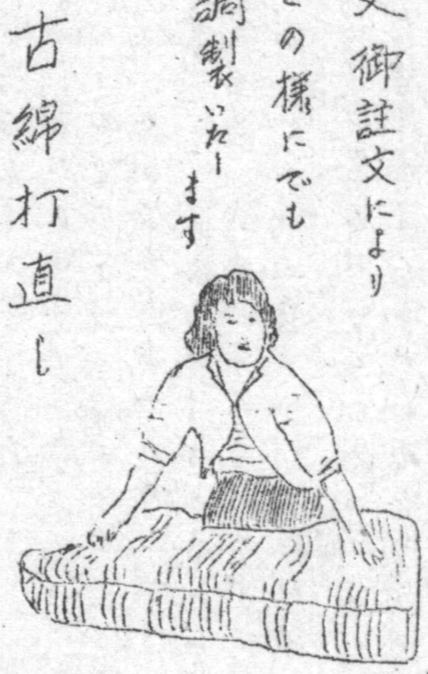 御註文により
の様にでも
調製いたします
古綿打直し